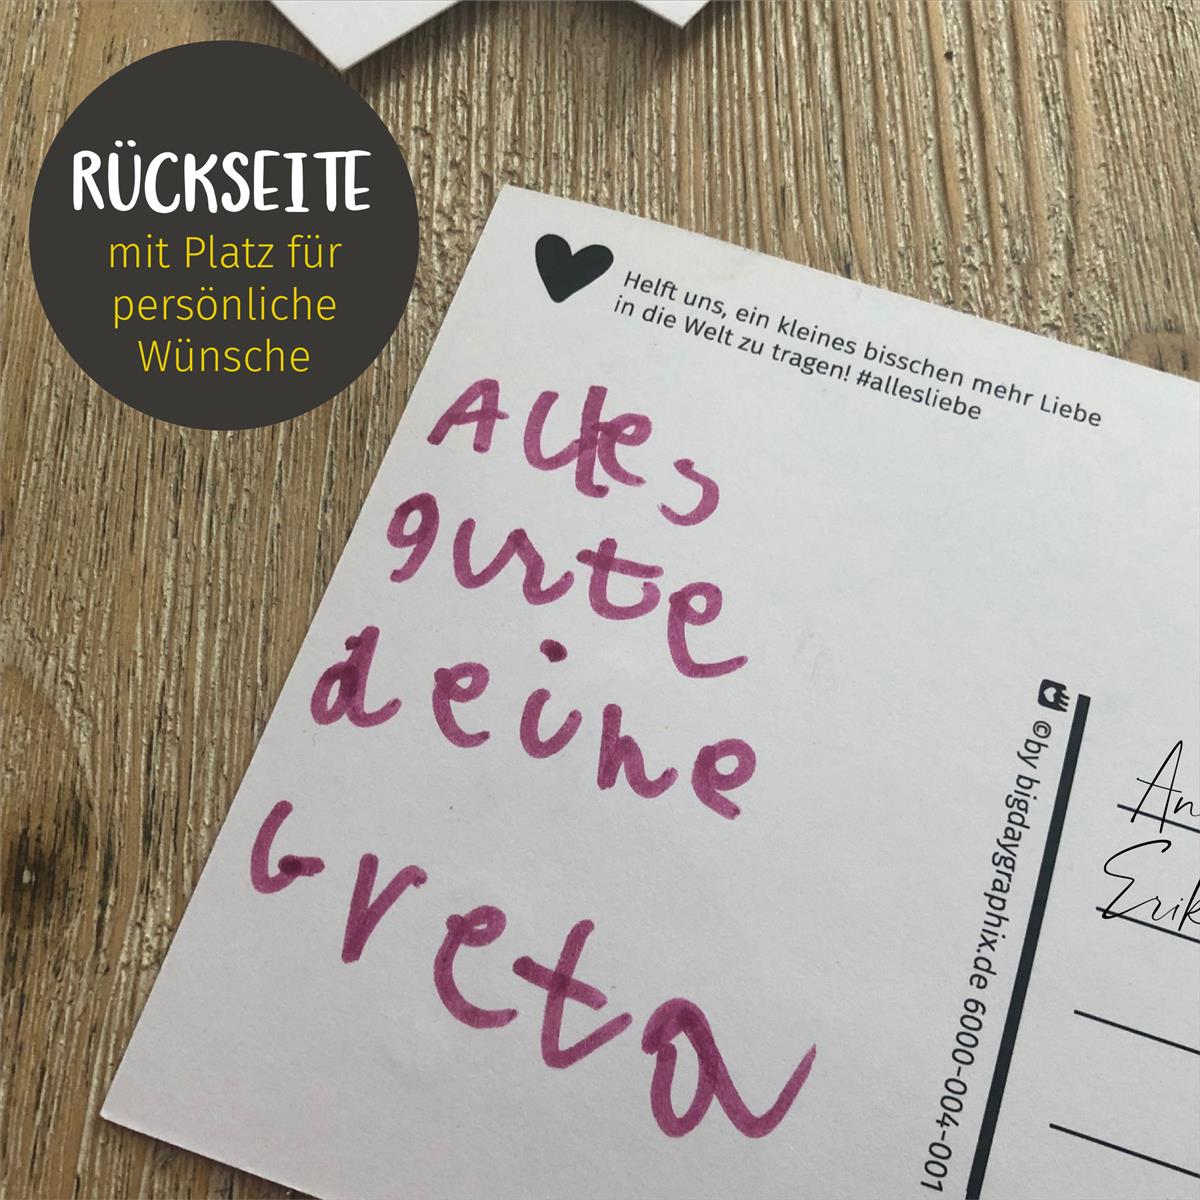 RÜCKSEITE
mit Platz für
persönliche
Wünsche
Helft uns, ein kleines bisschen mehr Liebe
in die Welt zu tragen! #allesliebe
Alles
gurte
deine
Greta
©by bigdaygraphix.de 6000-004-001